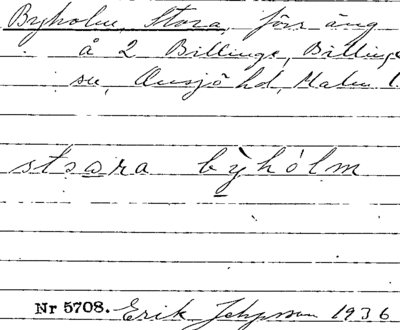 Byholm, Stora, förr äng
å 2 Billinge, Billinge
sn, Onsjö hd, Malm. l.
stora byholm
Nr 5708. Erik 1936